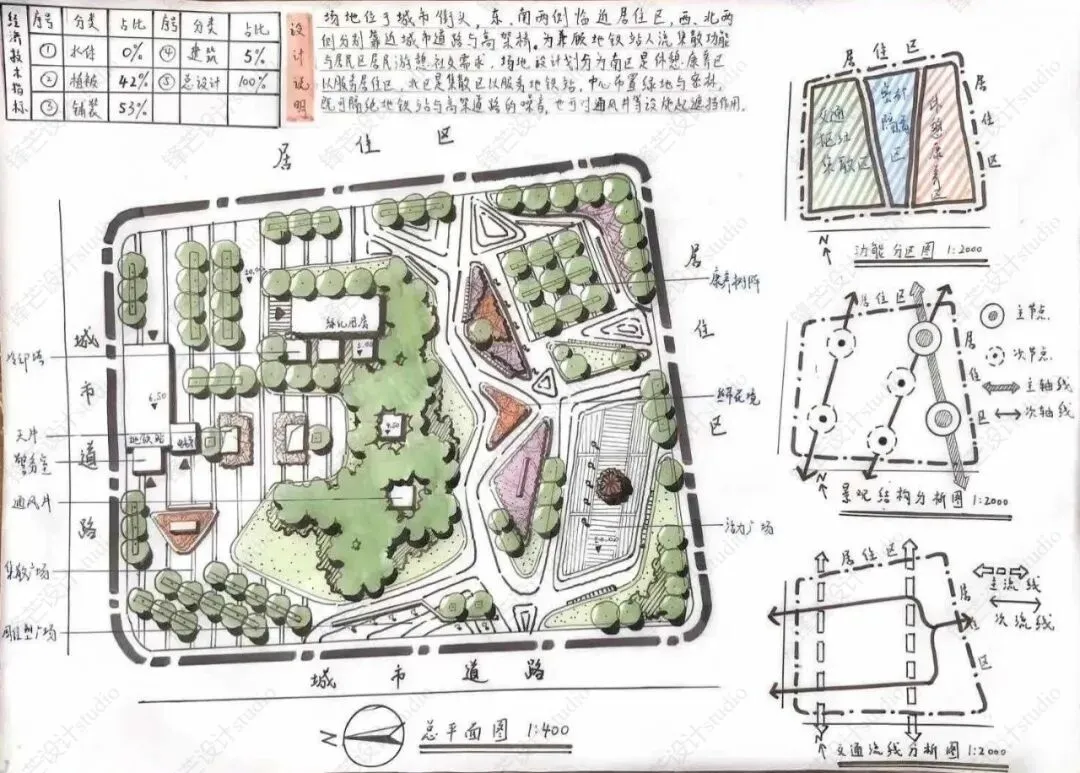 经济技术指标
序号 分类 占比 序号 分类 占比
① 水体 0% ④ 建筑 5%
② 植被 42% ⑤ 总设计 100%
③ 铺装 53%
设计说明
场地位于城市街头,东、南两侧临近居住区,西、北两
侧分别靠近城市道路与高架桥。为兼顾地铁站人流集散功能
与居民区居民游憩社交需求,场地设计划分为南区是休憩、康养区
以服务居住区,北区是集散区以服务地铁站,中心布置绿地与密林,
既可隔绝地铁站与高架道路的噪音,也可对通风井等设施起遮挡作用。
居住区
居住区
城市道路
城市道路
冷却塔
天井
警务室
通风井
集散广场
康养树阵
活力广场
地铁站
6.50
N
总平面图 1:400
居住区
居住区
交通枢纽集散区
密林隔离区
休憩康养区
N
功能分区图 1:2000
居住区
居住区
主节点
次节点
主轴线
次轴线
N
景观结构分析图 1:2000
居住区
居住区
主流线
次流线
N
交通流线分析图 1:2000
锋芒设计studio